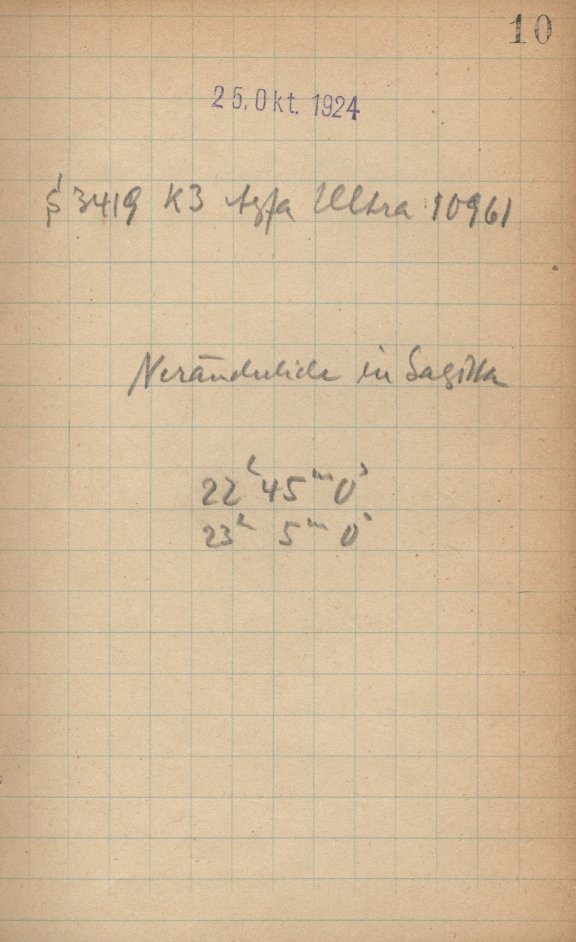 10
25. Okt. 1924
S 3419 K3 Agfa Ultra 10961
Veränderliche in Sagitta
22ʰ 45ᵐ 0ˢ
23ʰ 5ᵐ 0ˢ